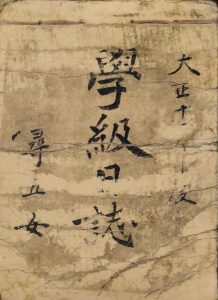 大正十一年度
學級日誌
尋五女